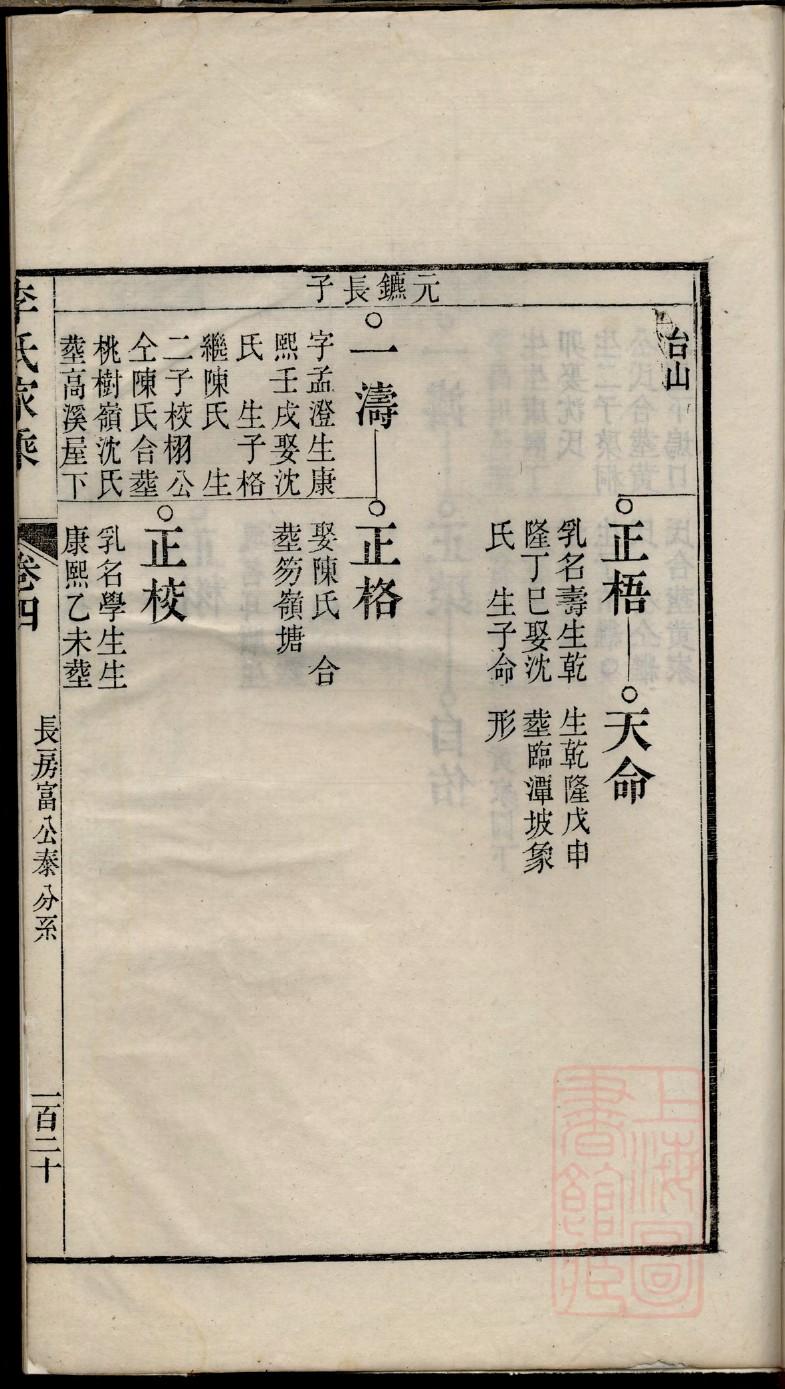 台山
正梧
乳名壽生乾
隆丁巳娶沈
氏　生子命
天命
生乾隆戊申
塟臨潭坡象
形
元鑣長子
一濤
字孟澄生康
熙壬戌娶沈
氏　生子格
繼陳氏　生
二子校栩公
仝陳氏合塟
桃樹嶺沈氏
塟高溪屋下
正格
娶陳氏　合
塟笏嶺塘
正校
乳名學生生
康熙乙未塟
李氏家乘
卷四
長房富八公泰八分系
一百二十
上海圖
書館藏